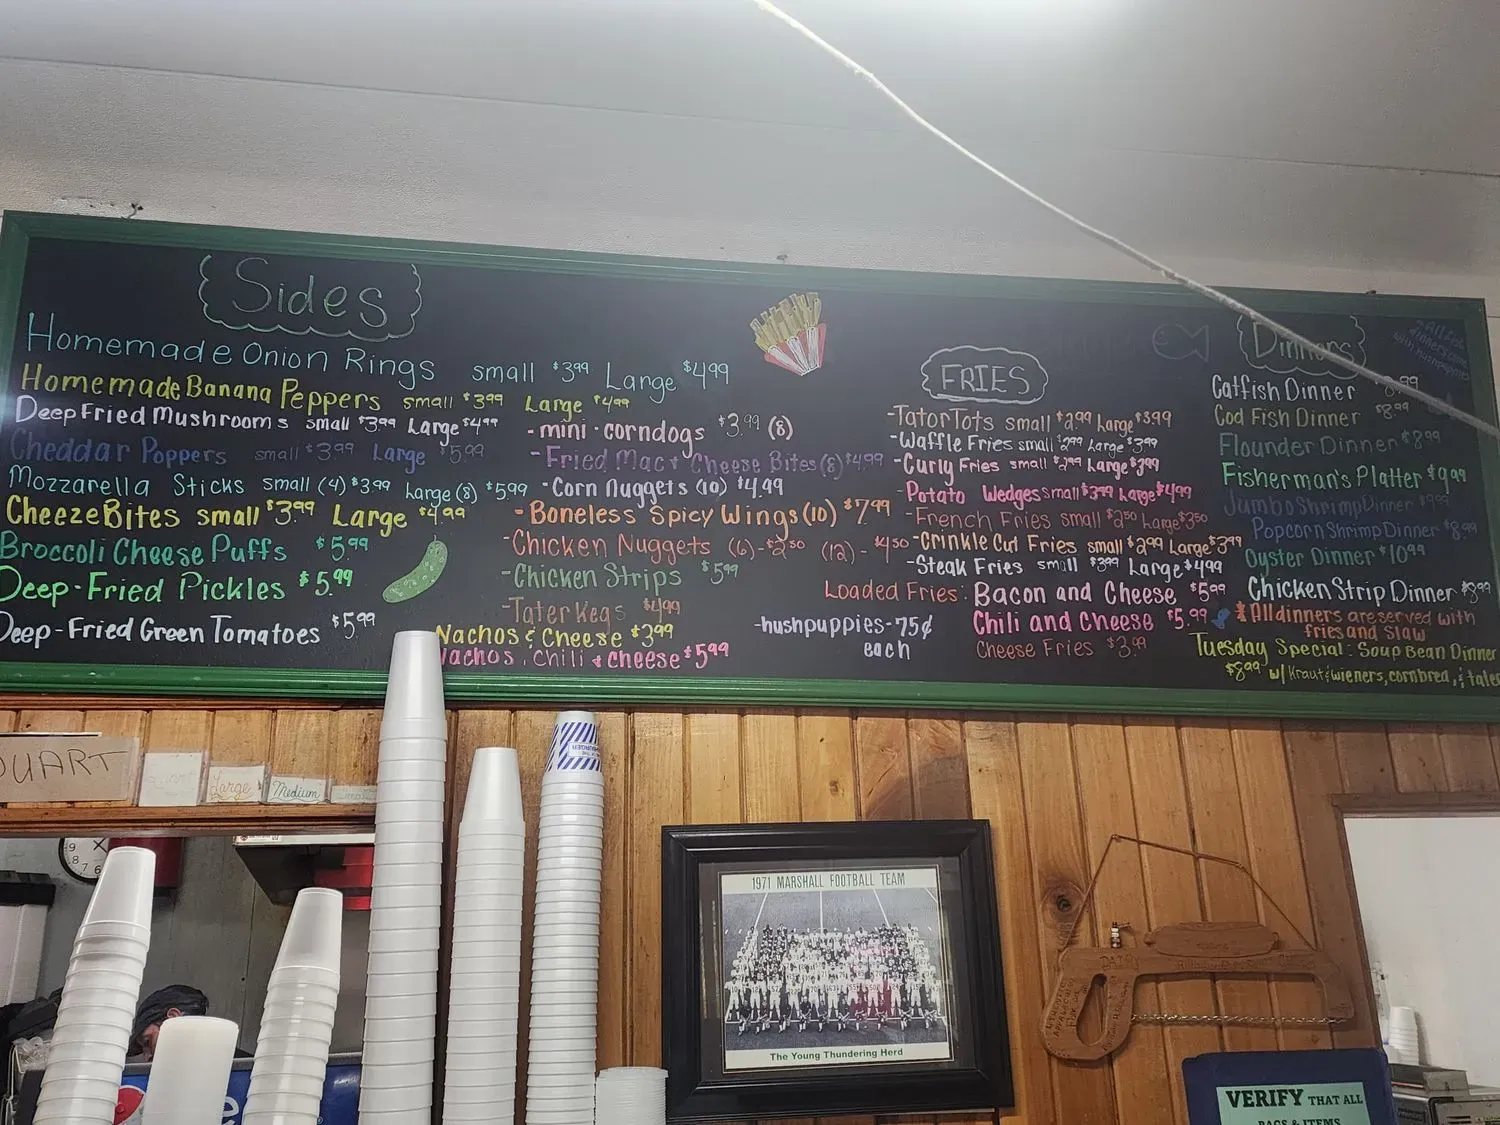 Sides
Homemade Onion Rings small $3.99 Large $4.99
Homemade Banana Peppers small $3.99 Large $4.99
Deep Fried Mushrooms small $3.99 Large $4.99
Cheddar Poppers small $3.99 Large $5.99
Mozzarella Sticks small (4) $3.99 Large (8) $5.99
CheezeBites small $3.99 Large $4.99
Broccoli Cheese Puffs $5.99
Deep-Fried Pickles $5.99
Deep-Fried Green Tomatoes $5.99
-mini-corndogs $3.99 (8)
-Fried Mac + Cheese Bites (8) $4.99
-Corn Nuggets (10) $4.99
-Boneless Spicy Wings (10) $7.99
-Chicken Nuggets (6)-$2.50 (12)-$4.50
-Chicken Strips $5.99
-Tater Kegs $4.99
Nachos & Cheese $3.99
Nachos, Chili & Cheese $5.99
-hushpuppies-75¢
each
FRIES
-Tator Tots small $2.99 Large $3.99
-Waffle Fries small $2.99 Large $3.99
-Curly Fries small $2.99 Large $3.99
-Potato Wedges small $3.99 Large $4.99
-French Fries small $2.50 Large $3.50
-Crinkle Cut Fries small $2.99 Large $3.99
-Steak Fries small $3.99 Large $4.99
Loaded Fries: Bacon and Cheese $5.99
Chili and Cheese $5.99
Cheese Fries $3.99
Dinners
Catfish Dinner 8.99
Cod Fish Dinner $8.99
Flounder Dinner $8.99
Fisherman's Platter $9.99
Jumbo Shrimp Dinner $9.99
Popcorn Shrimp Dinner $8.99
Oyster Dinner $10.99
Chicken Strip Dinner $8.99
*All dinners are served with
fries and slaw
Tuesday Special: Soup Bean Dinner
$8.99 w/ Kraut & wieners, cornbread, &
QUART
Large
Medium
1971 MARSHALL FOOTBALL TEAM
The Young Thundering Herd
VERIFY THAT ALL
BAGS & ITEMS